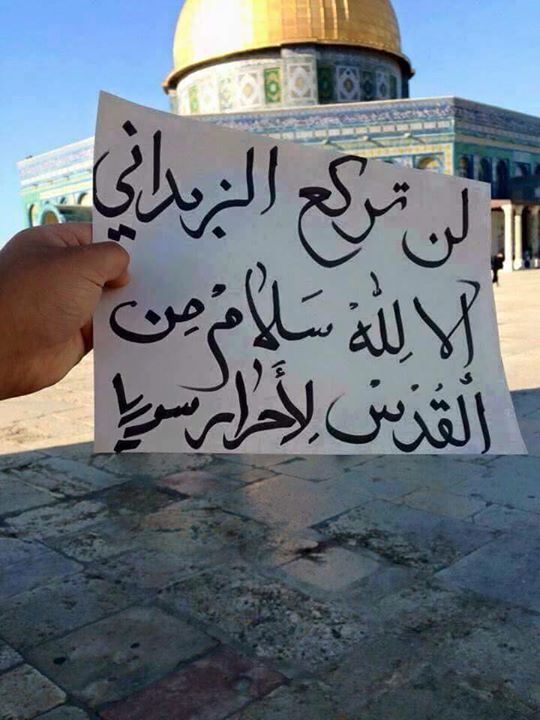 لن تركع الزبداني
الا لِلّه سَلامْ مِن
القُدْسْ لِأحرار سوريا